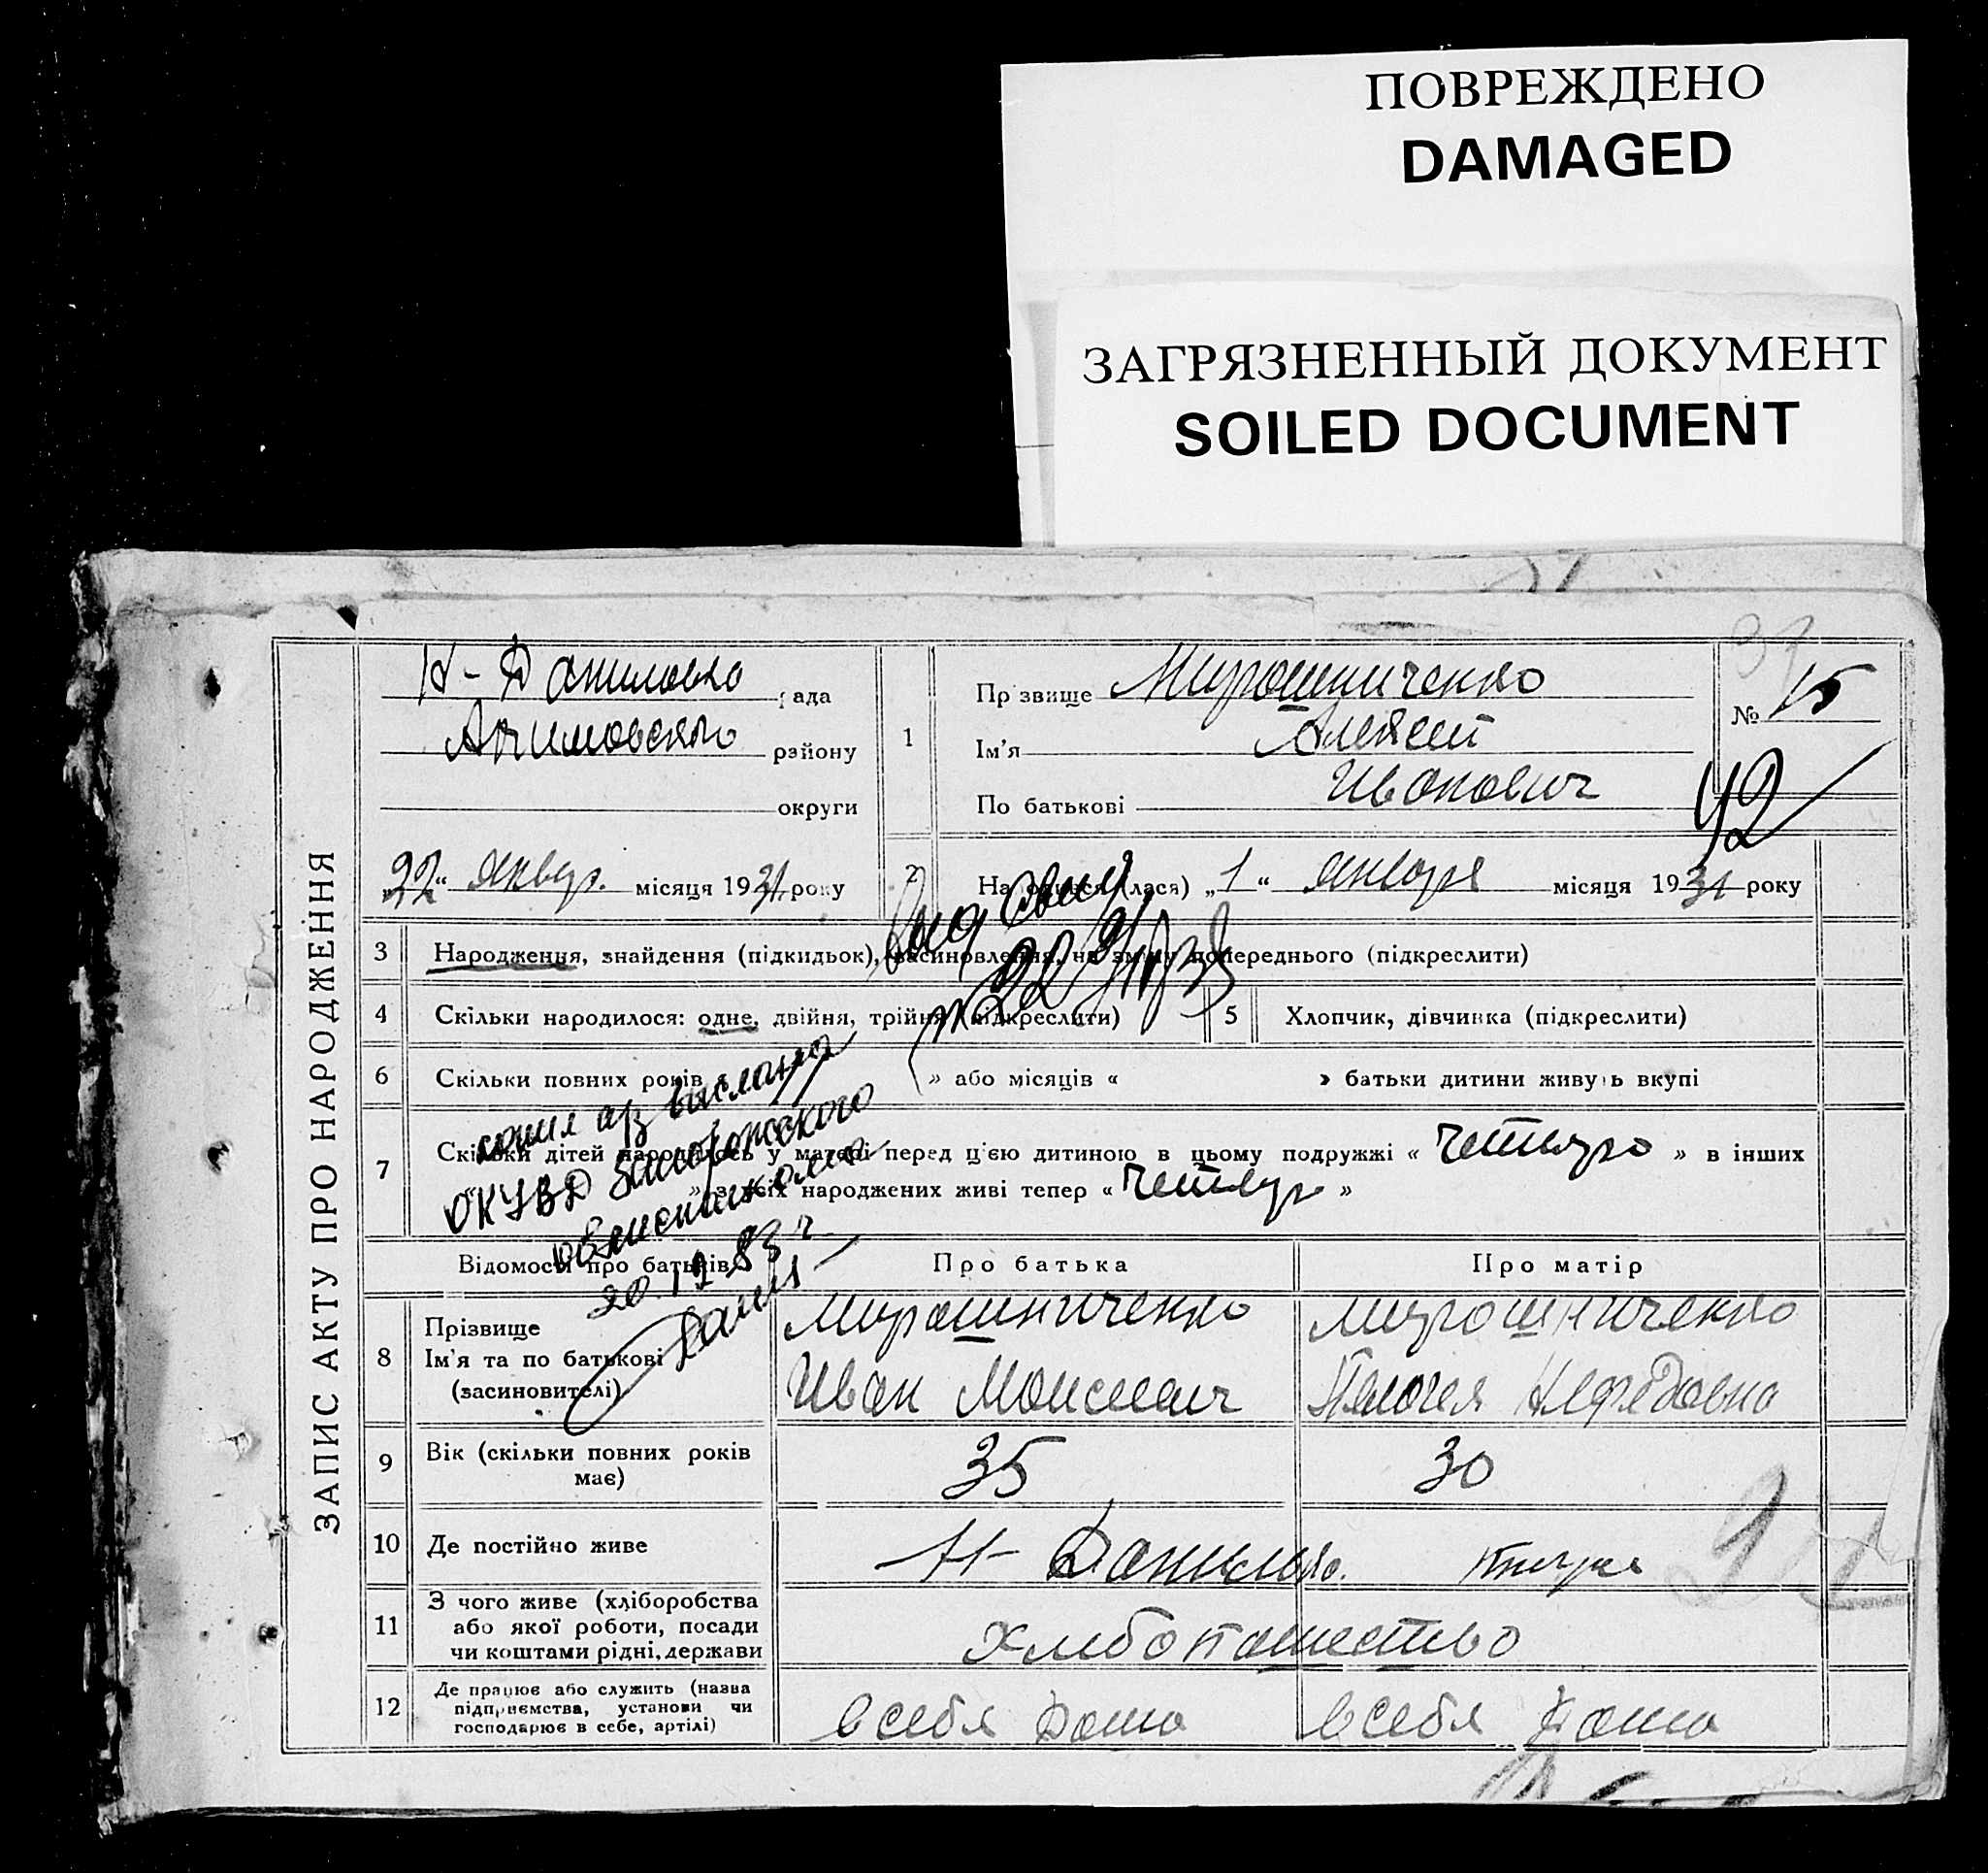 ПОВРЕЖДЕНО
DAMAGED
ЗАГРЯЗНЕННЫЙ ДОКУМЕНТ
SOILED DOCUMENT
ЗАПИС АКТУ ПРО НАРОДЖЕННЯ
Н-Даниловка рада
Акимовского району
округи
1
Прізвище Мирошниченко
Ім'я Алексей
По батькові Иванович
№ 15
42
„22“ январ. місяця 1931 року
2 Народився (лася) „1“ января місяця 1931 року
3 Народження, знайдення (підкидьок), засиновлення, на зміну попереднього (підкреслити)
4 Скільки народилося: одне, двійня, трійня (підкреслити) 5 Хлопчик, дівчинка (підкреслити)
6 Скільки повних років « » або місяців « » батьки дитини живуть вкупі
копия а/з выслана
ОКУВД Запорожского
облисполкома
20.12.83 г.
7 Скільки дітей народилось у матері перед цією дитиною в цьому подружжі « четверо » в інших
« » з усіх народжених живі тепер « четверо »
Відомості про батьків Про батька Про матір
8 Прізвище
Ім'я та по батькові
(засиновителі)
Мирошниченко
Иван Моисеевич
Мирошниченко
Пелогея
9 Вік (скільки повних років має) 35 30
10 Де постійно живе Н-Даниловка.
11 З чого живе (хліборобства
або якої роботи, посади
чи коштами рідні, держави
Хлебопашество
12 Де працює або служить (назва
підприємства, установи чи
господарює в себе, артілі)
в себя дома в себя дома